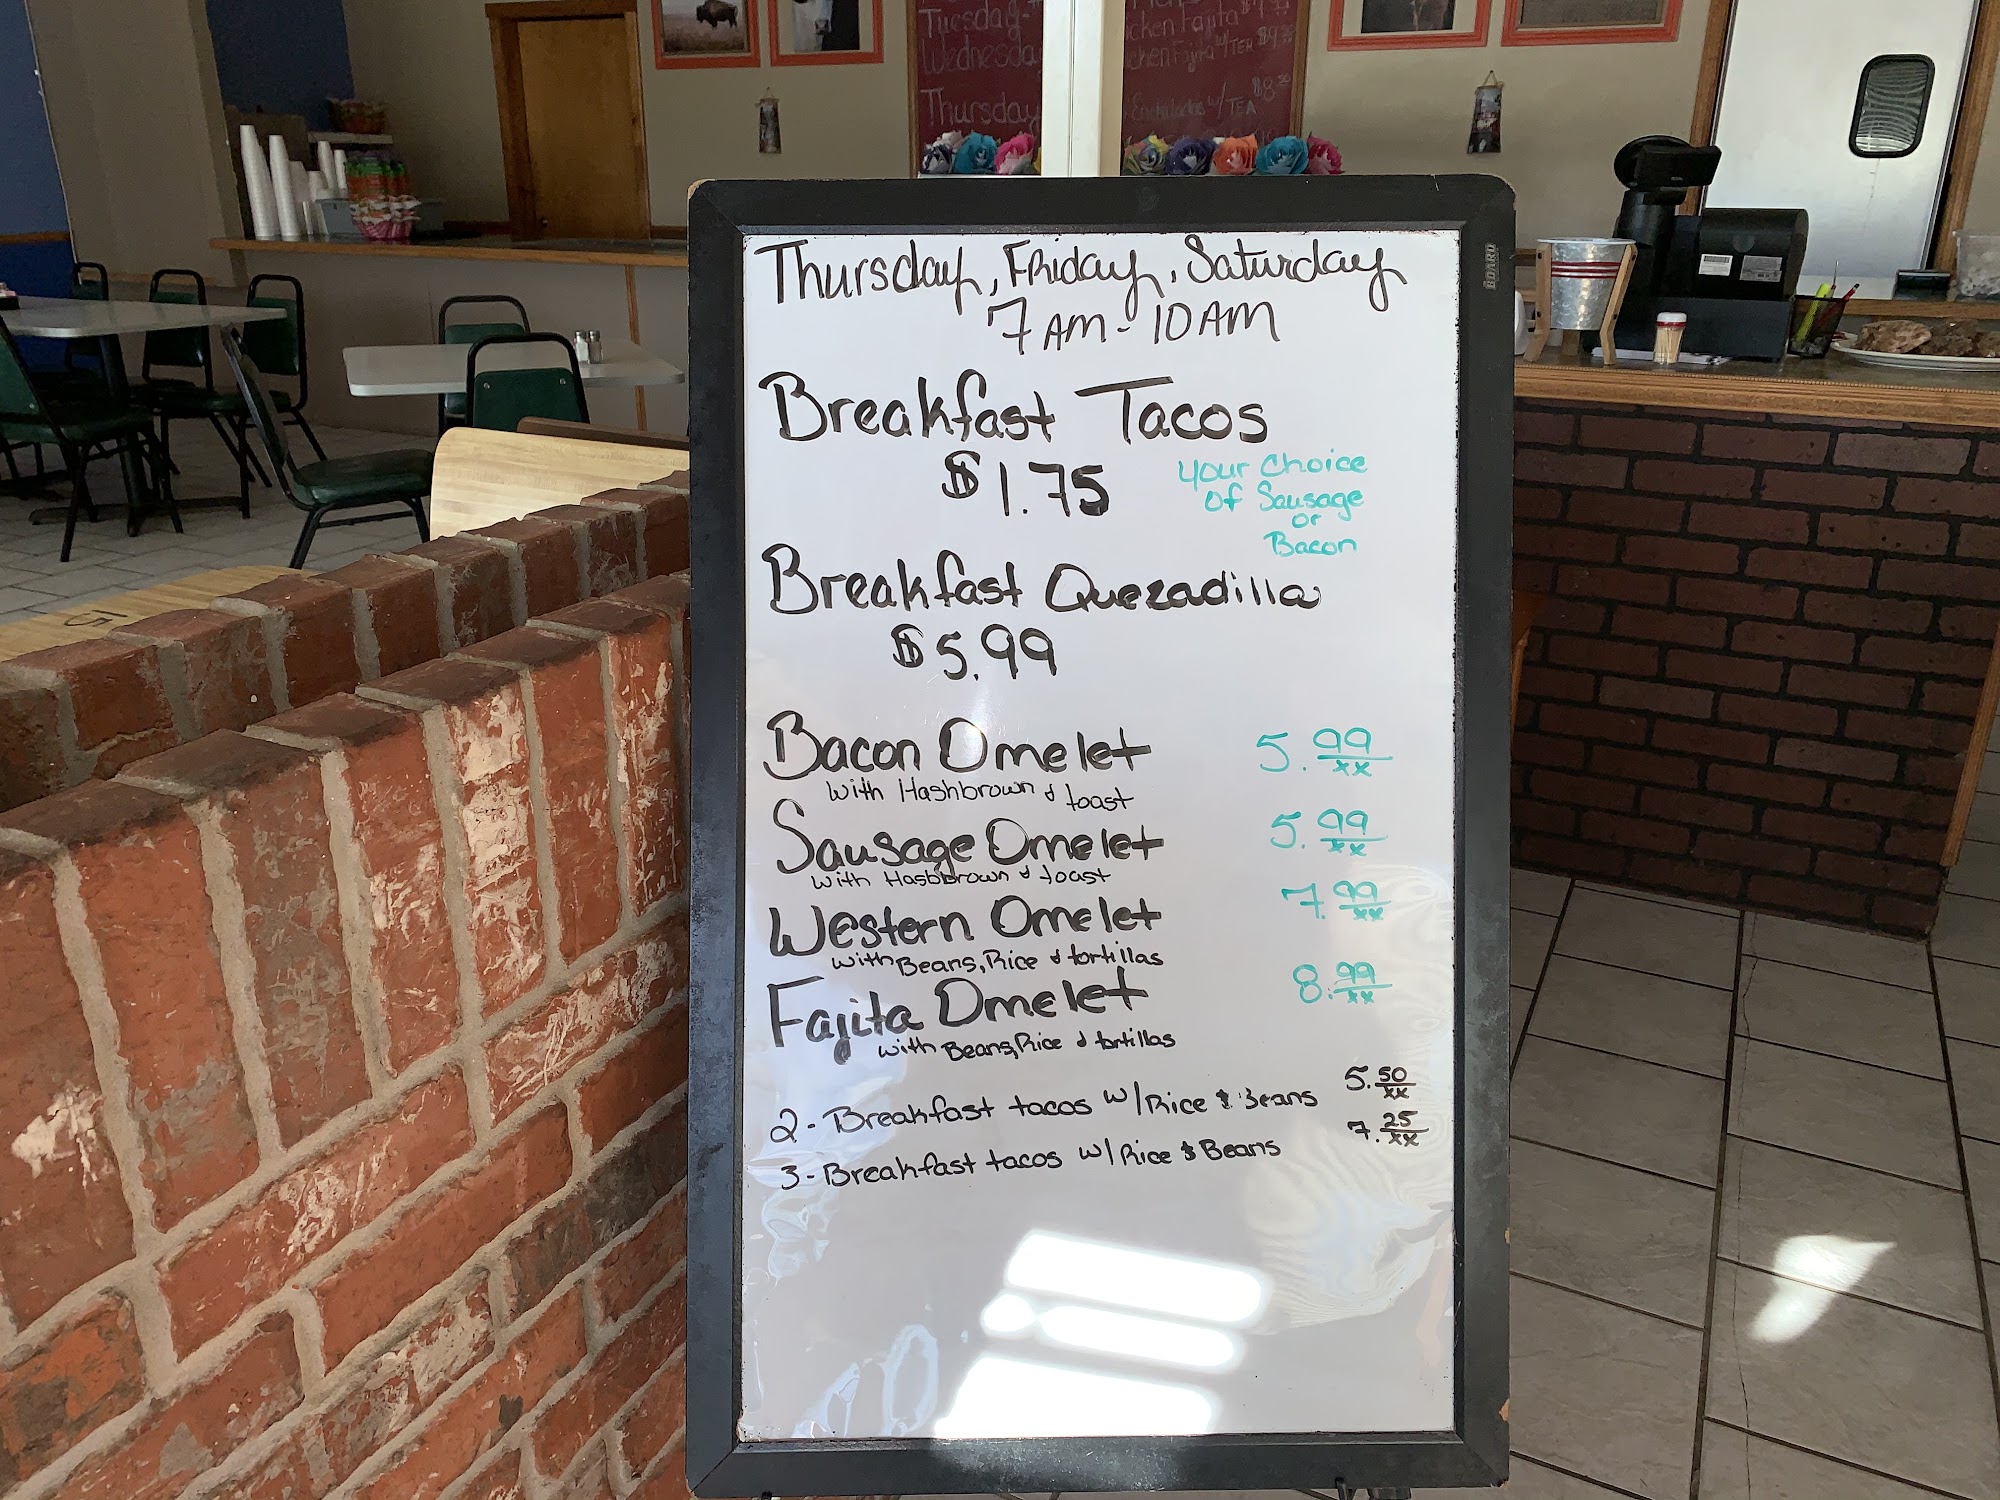 Tuesday
Wednesday
Thursday
Fajita
Fajita w/TEA
Enchiladas w/TEA $8.50
BOARD
Thursday, Friday, Saturday
7AM - 10AM
Breakfast Tacos
$1.75
your Choice
of Sausage
or
Bacon
Breakfast Quezadilla
$5.99
Bacon Omelet 5.99/xx
with Hashbrown & toast
Sausage Omelet 5.99/xx
with Hashbrown & toast
Western Omelet 7.99/xx
with Beans, Rice & tortillas
Fajita Omelet 8.99/xx
with Beans, Rice & tortillas
2 - Breakfast tacos w/Rice & Beans 5.50/xx
3 - Breakfast tacos w/Rice & Beans 7.25/xx
15